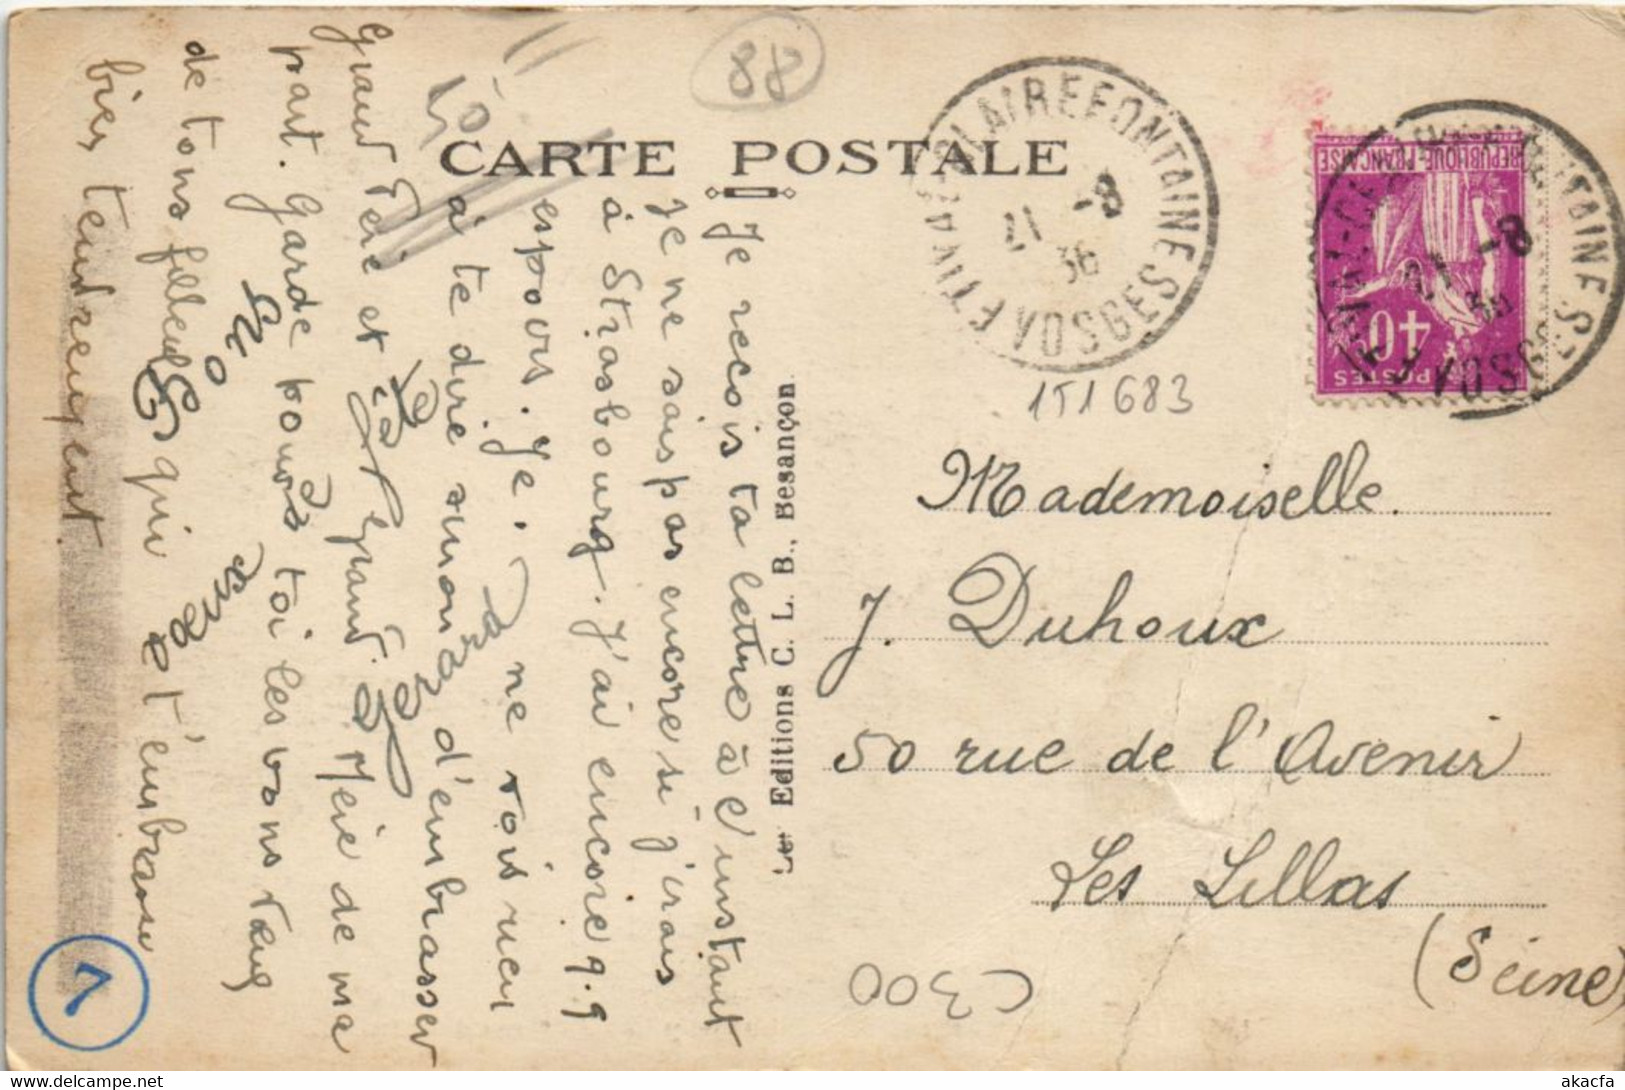 88
CARTE POSTALE
ETIVAL-CLAIREFONTAINE
VOSGES
21 -8
36
REPUBLIQUE-FRANCAISE
40
POSTES
21 -8
36
VOSGES
151683
Je reçois ta lettre à l'instant
Je ne sais pas encore si j'irais
à Strasbourg. J'ai encore q.q
espoirs. Je ne vois rien
à te dire sinon d'embrasser
Grand Père et Grand Mère de ma
part. Garde pour toi les bons
de tons filleul qui t'embrasse
bien tendrement.
deux
Les Editions C. L. B., Besançon
Mademoiselle
J. Duhoux
50 rue de l'Avenir
Les Lillas
(Seine)
C300
7
akacfa
www.delcampe.net